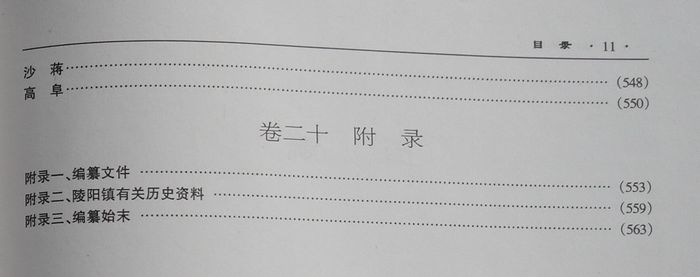 目 录 · 11 ·
沙 蒋……………………………………(548)
高 阜……………………………………(550)
卷二十 附 录
附录一、编纂文件……………………………………(553)
附录二、陵阳镇有关历史资料……………………………………(559)
附录三、编纂始末……………………………………(563)